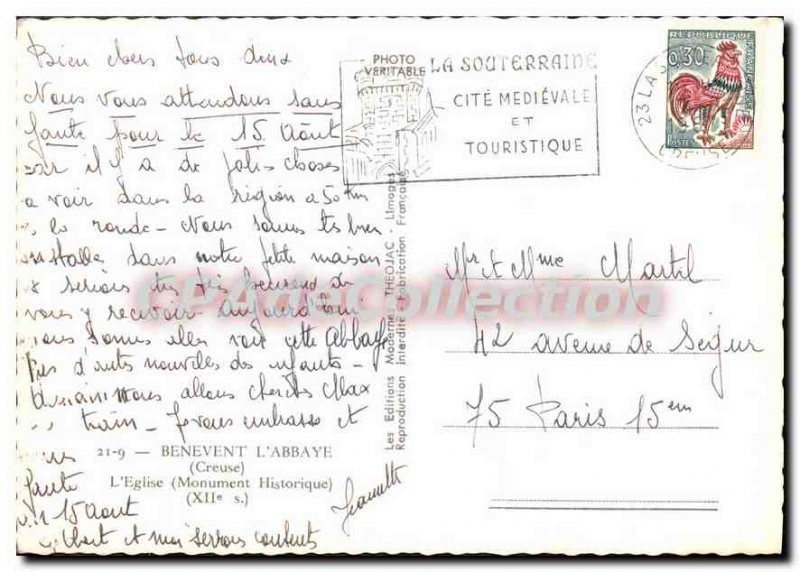 Bien chers tous deux
Nous vous attendons sans
faute pour le 15 Août
car il y a de jolies choses
a voir dans la région a 50 Km
a la ronde - Nous sommes très bien
installés dans notre petite maison
& serions très heureux de
vous y recevoir aujourd'hui
nous sommes allés voir cette Abbaye
Pas d'autres nouvelles des enfants -
nous allons chercher Max
train - Je vous embrasse et
21-9 — BENEVENT L'ABBAYE
(Creuse)
L'Eglise (Monument Historique)
(XIIe s.)
faute
15 Aout
et moi serons contents
PHOTO
VERITABLE
Les Editions Modernes THEOJAC - Limoges
Reproduction interdite - Fabrication Française
LA SOUTERRAINE
CITÉ MEDIÉVALE
ET
TOURISTIQUE
23 LA
CREUSE
REPUBLIQUE FRANCAISE
0,30
POSTES
Mr et Mme Martel
42 avenue de Ségur
75 Paris 15em
CPAdeCollection